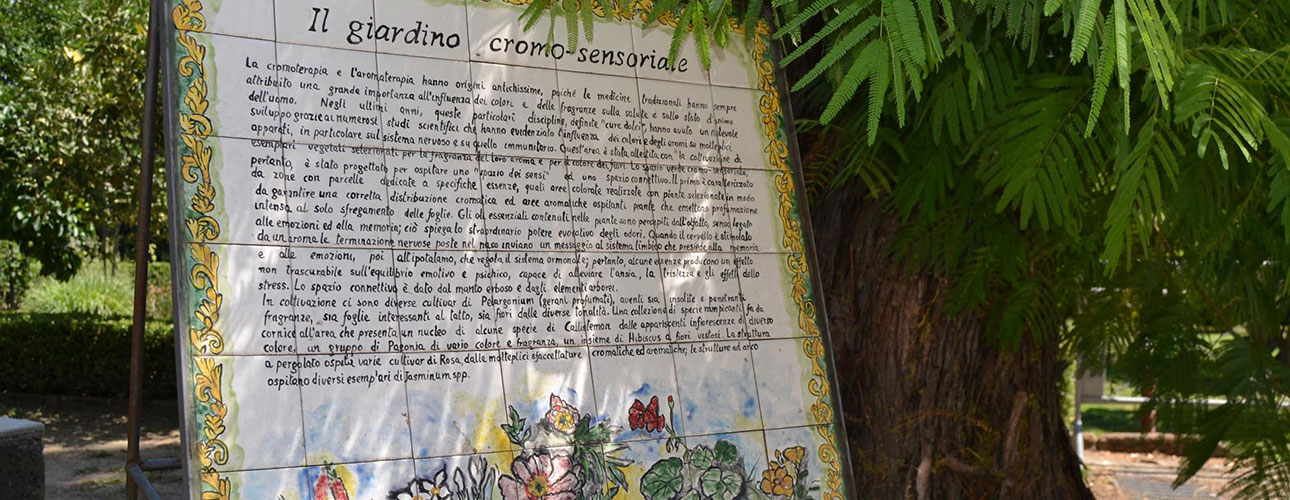 Il giardino cromo-sensoriale
La cromoterapia e l'aromaterapia hanno origini antichissime, poiché le medicine tradizionali hanno sempre
attribuito una grande importanza all'influenza dei colori e delle fragranze sulla salute e sullo stato d'animo
dell'uomo. Negli ultimi anni, queste particolari discipline, definite "cure dolci", hanno avuto un notevole
sviluppo grazie ai numerosi studi scientifici che hanno evidenziato l'influenza dei colori e degli aromi su molteplici
apparati, in particolare sul sistema nervoso e su quello immunitario. Quest'area è stata allestita con la coltivazione di
esemplari vegetali selezionati per la fragranza del loro aroma e per il colore dei fiori. Lo spazio verde cromo-sensoriale,
pertanto, è stato progettato per ospitare uno "spazio dei sensi" ed uno spazio connettivo. Il primo è caratterizzato
da zone con parcelle dedicate a specifiche essenze, quali aree colorate realizzate con piante selezionate in modo
da garantire una corretta distribuzione cromatica ed aree aromatiche ospitanti piante che emettono profumazione
intensa al solo sfregamento delle foglie. Gli oli essenziali contenuti nelle piante sono percepiti dall'olfatto, senso legato
alle emozioni ed alla memoria; ciò spiega lo straordinario potere evocativo degli odori. Quando il cervello è stimolato
da un aroma le terminazione nervose poste nel naso inviano un messaggio al sistema limbico che presiede alla memoria
e alle emozioni, poi all'ipotalamo, che regola il sistema ormonale; pertanto, alcune essenze producono un effetto
non trascurabile sull'equilibrio emotivo e psichico, capace di alleviare l'ansia, la tristezza e gli effetti dello
stress. Lo spazio connettivo è dato dal manto erboso e dagli elementi arborei.
In coltivazione ci sono diverse cultivar di Pelargonium (gerani profumati), aventi sia insolite e penetranti
fragranze, sia foglie interessanti al tatto, sia fiori dalle diverse tonalità. Una collezione di specie rampicanti fa da
cornice all'area che presenta un nucleo di alcune specie di Callistemon dalle appariscenti infiorescenze di diverso
colore, un gruppo di Paeonia di vario colore e fragranza, un insieme di Hibiscus a fiori vistosi. La struttura
a pergolato ospita varie cultivar di Rosa, dalle molteplici sfaccettature cromatiche ed aromatiche; le strutture ad arco
ospitano diversi esemplari di Jasminum spp.